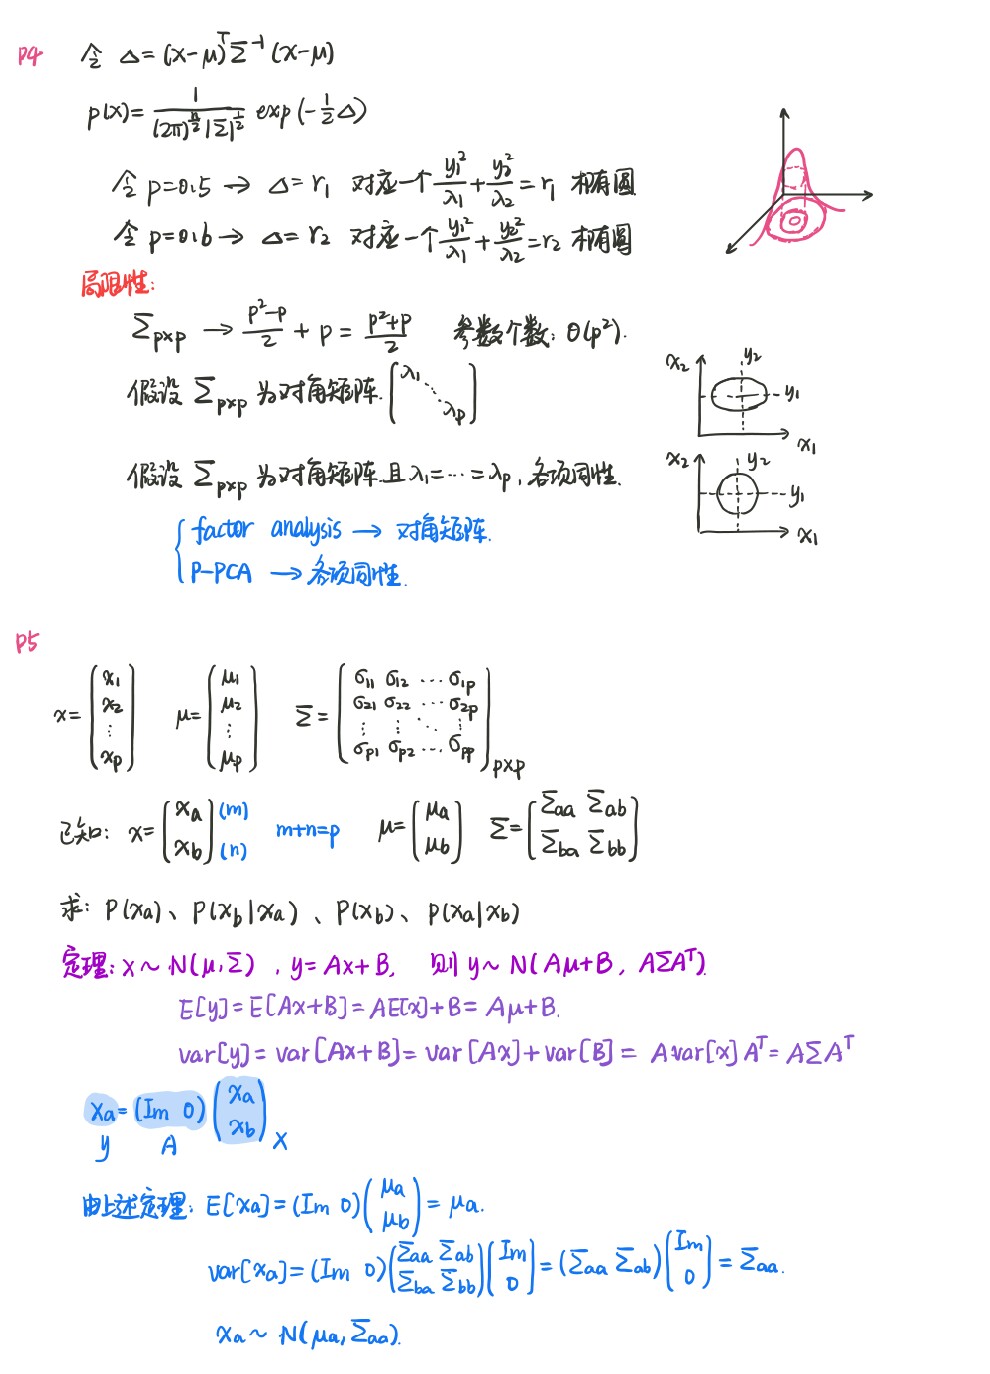 P4 令 Δ=(x-μ)ᵀΣ⁻¹(x-μ)
p(x)= 1/((2π)^{p/2}|Σ|^{1/2}) exp(-½Δ)
令 p=0.5 → Δ=r₁ 对应一个 y₁²/λ₁+y₂²/λ₂=r₁ 椭圆
令 p=0.6 → Δ=r₂ 对应一个 y₁²/λ₁+y₂²/λ₂=r₂ 椭圆
局限性:
Σ_{p×p} → (p²-p)/2 + p = (p²+p)/2 参数个数: O(p²).
假设 Σ_{p×p} 为对角矩阵. (λ₁ ⋱ λ_p)
x₂ y₂ y₁ x₁
假设 Σ_{p×p} 为对角矩阵且 λ₁=⋯=λ_p, 各项同性.
x₂ y₂ y₁ x₁
{ factor analysis → 对角矩阵.
P-PCA → 各项同性.
P5
x=(x₁ x₂ ⋮ x_p) μ=(μ₁ μ₂ ⋮ μ_p) Σ=(σ₁₁ σ₁₂ ⋯ σ₁p σ₂₁ σ₂₂ ⋯ σ₂p ⋮ ⋮ ⋱ ⋮ σp₁ σp₂ ⋯ σpp)_{p×p}
已知: x=(x_a x_b) (m) (n) m+n=p μ=(μ_a μ_b) Σ=(Σ_aa Σ_ab Σ_ba Σ_bb)
求: P(x_a)、P(x_b|x_a)、P(x_b)、P(x_a|x_b)
定理: x∼N(μ,Σ), y=Ax+B, 则 y∼N(Aμ+B, AΣAᵀ).
E[y]=E[Ax+B]=AE[x]+B=Aμ+B.
var[y]=var[Ax+B]=var[Ax]+var[B]=A·var[x]Aᵀ=AΣAᵀ
x_a=(I_m 0)(x_a x_b)
y A X
由上述定理: E[x_a]=(I_m 0)(μ_a μ_b)=μ_a.
var[x_a]=(I_m 0)(Σ_aa Σ_ab Σ_ba Σ_bb)(I_m 0)=(Σ_aa Σ_ab)(I_m 0)=Σ_aa.
x_a∼N(μ_a,Σ_aa).